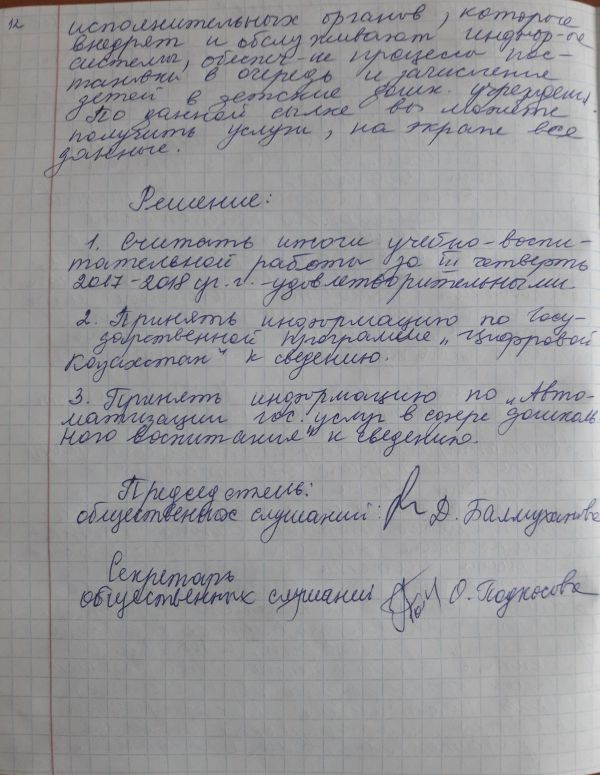 12 исполнительных органов, которые
внедрят и обслуживают информ-ые
системы, обеспеч-ие процессы пос-
тановки в очередь и зачисления
детей в детские дошк. учрежден.
По данной сылке вы можете
получить услуги, на экране все
данные.
Решение:
1. Считать итоги учебно-воспи-
тательной работы за III четверть
2017-2018 уч. г. - удовлетворительными.
2. Принять информацию по Госу-
дарственной программе „Цифровой
Казахстан" к сведению.
3. Принять информацию по „Авто-
матизации гос. услуг в сфере дошколь
ного воспитания" к сведению.
Председатель:
общественных слушаний: Д. Балмуханова
Секретарь
общественных слушаний О. Подкосова